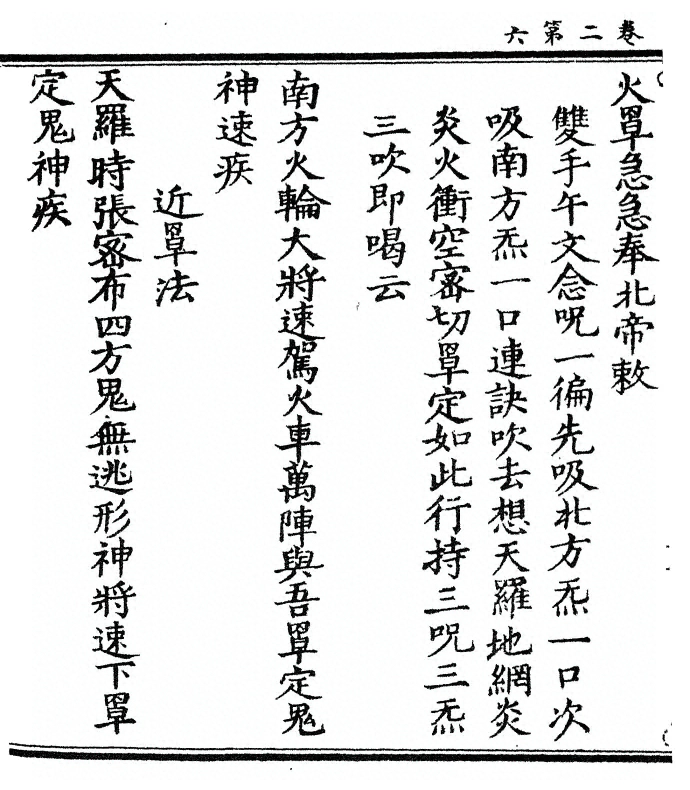 卷二第六
火罩急急奉北帝敕
雙手午文念呪一徧先吸北方炁一口次
吸南方炁一口連訣吹去想天羅地網炎
炎火衝空密切罩定如此行持三呪三炁
三吹即喝云
南方火輪大將速駕火車萬陣與吾罩定鬼
神速疾
近罩法
天羅時張密布四方鬼無逃形神將速下罩
定鬼神疾